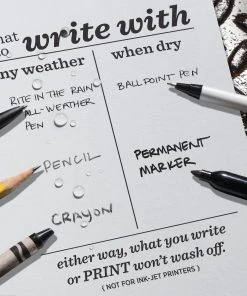 write with
weather
when dry
RITE IN THE RAIN
ALL-WEATHER
PEN
BALLPOINT PEN
PENCIL
PERMANENT
MARKER
CRAYON
either way, what you write
or PRINT won't wash off.
( NOT FOR INK-JET PRINTERS )